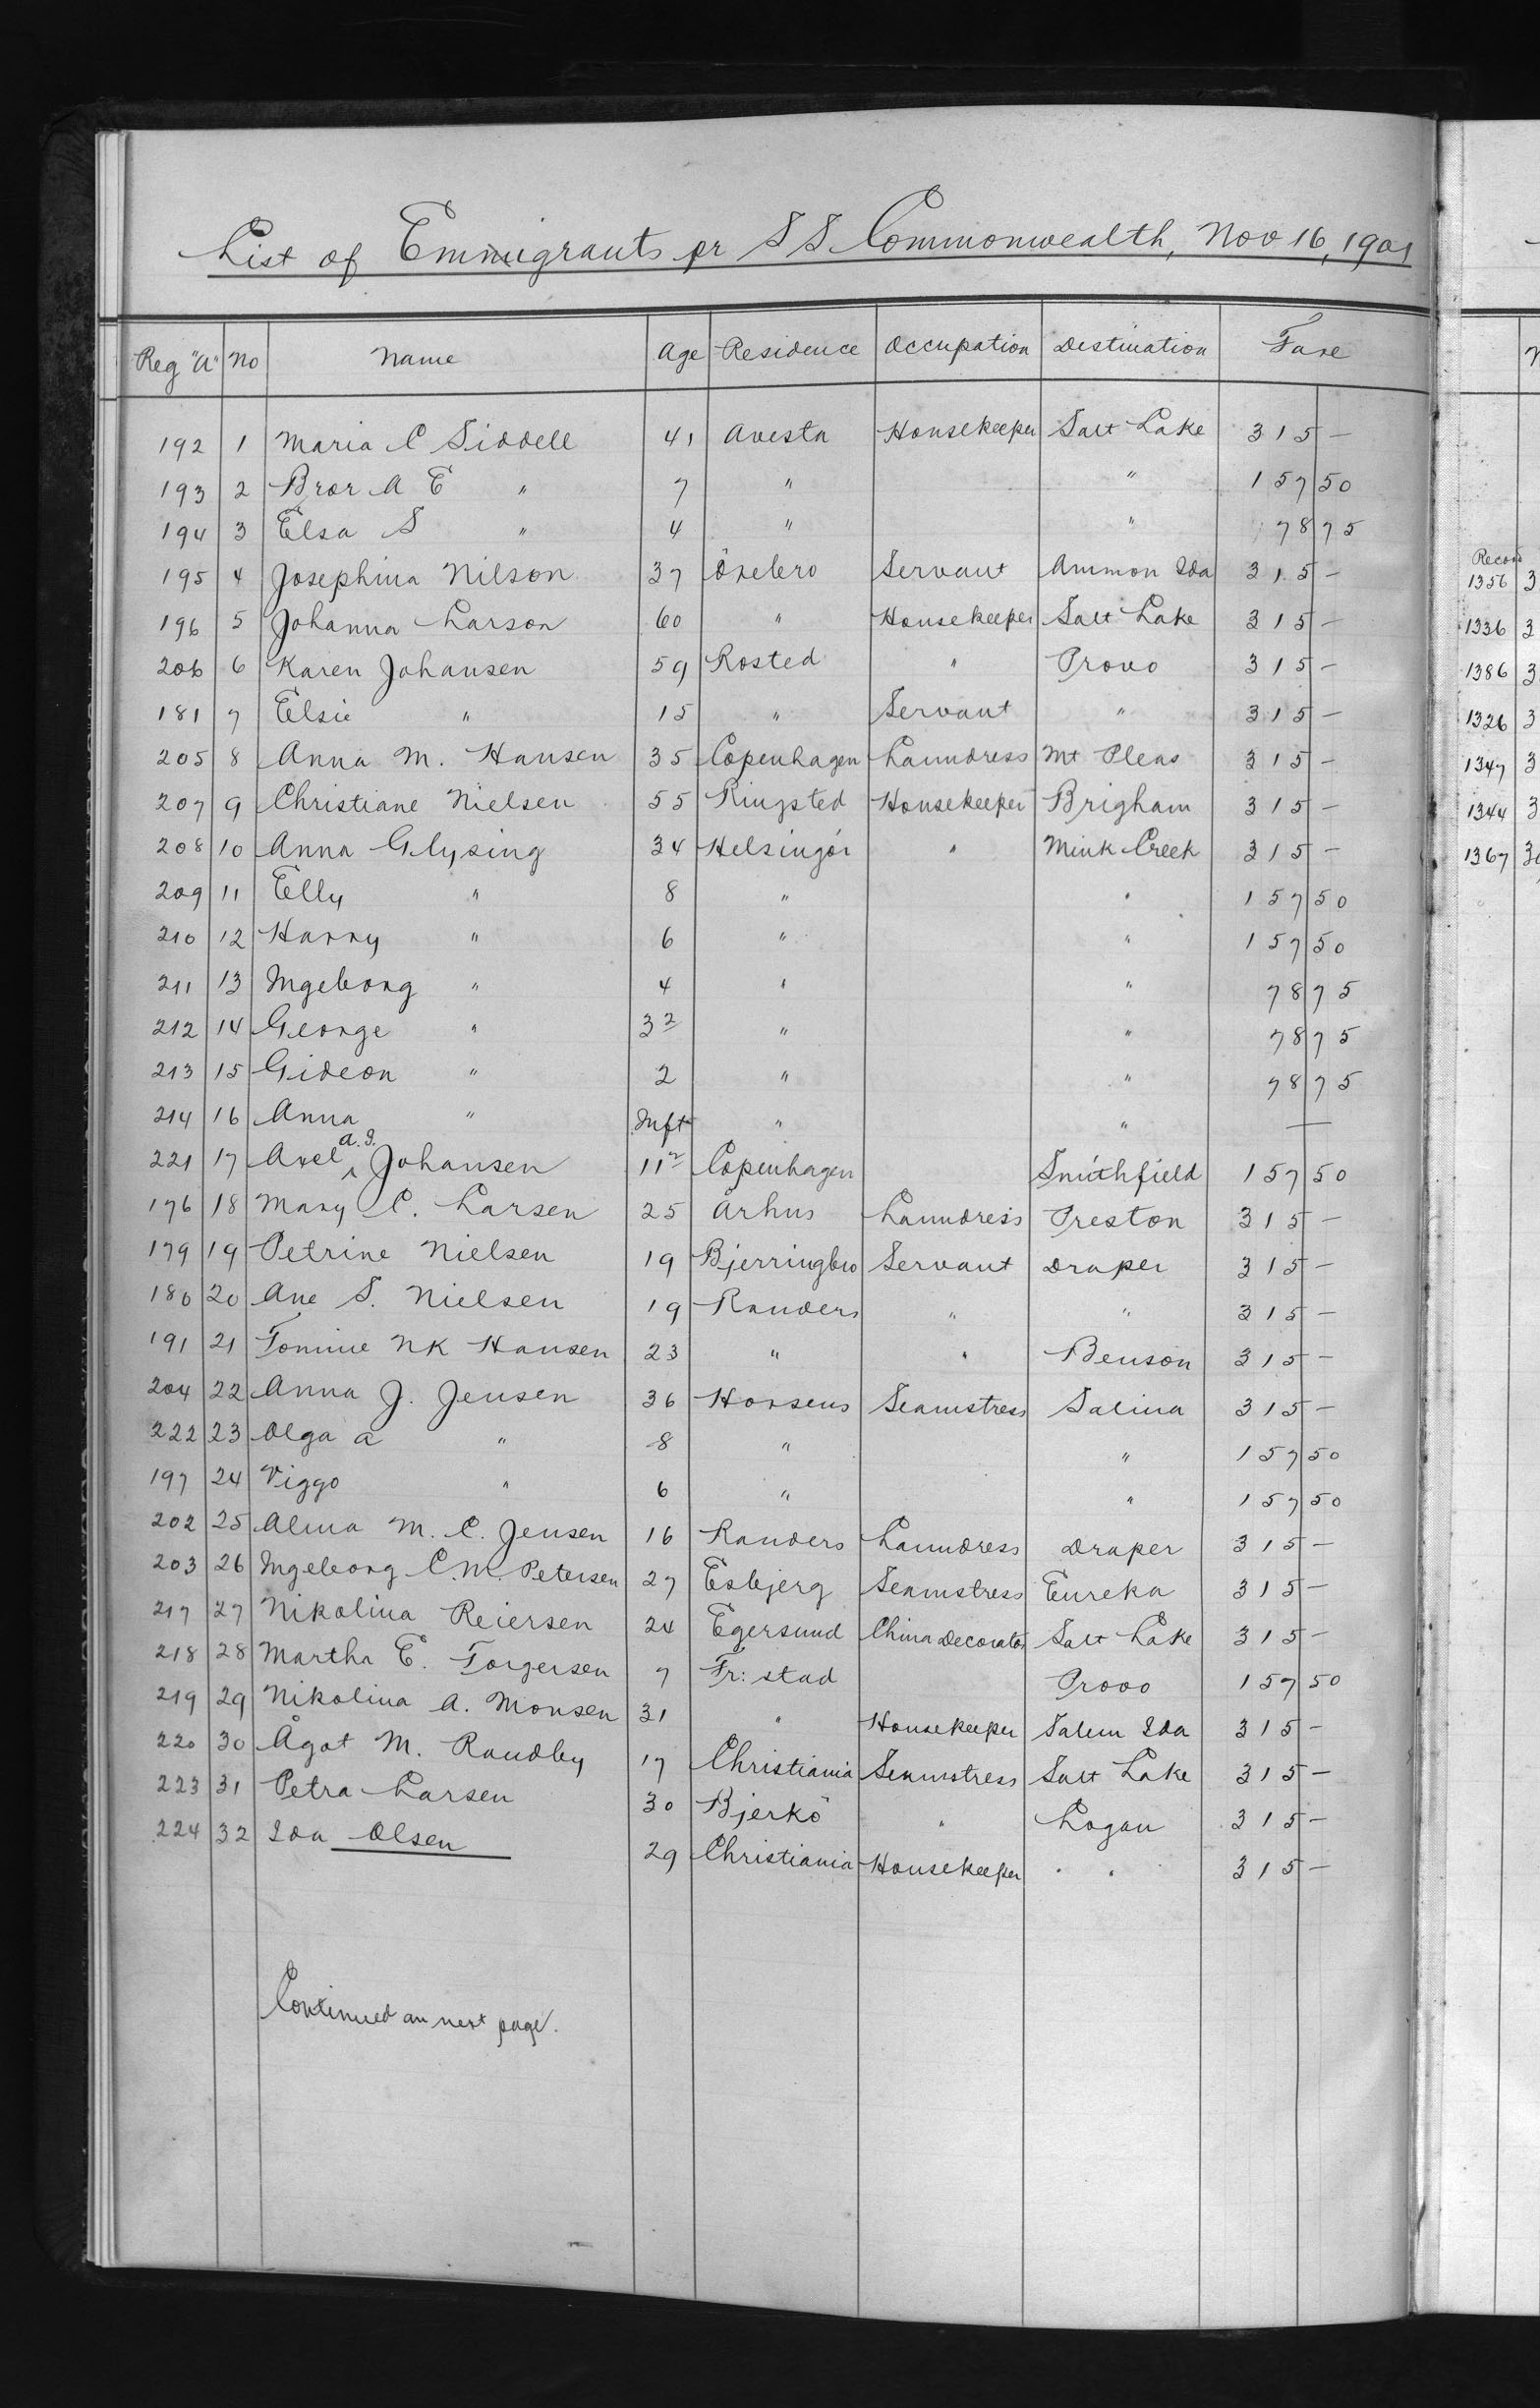 List of Emmigrants pr S S Commonwealth, Nov 16, 1901
Reg "A" No Name Age Residence Occupation Destination Fare
192 1 Maria C Siddell 41 Avesta Housekeeper Salt Lake 315 —
193 2 Bror A E " 7 " " 157 50
194 3 Elsa S " 4 " " 78 75
195 4 Josephina Nilson 37 Örebro Servant Ammon Ida 315 —
196 5 Johanna Larson 60 " Housekeeper Salt Lake 315 —
206 6 Karen Johansen 59 Rosted " Provo 315 —
181 7 Elsie " 15 " Servant " 315 —
205 8 Anna M. Hansen 35 Copenhagen Laundress Mt Pleas 315 —
207 9 Christiane Nielsen 55 Ringsted Housekeeper Brigham 315 —
208 10 Anna Glysing 34 Helsingör " Mink Creek 315 —
209 11 Elly " 8 " " 157 50
210 12 Harry " 6 " " 157 50
211 13 Ingeborg " 4 " " 78 75
212 14 George " 3 2 " " 78 75
213 15 Gideon " 2 " " 78 75
214 16 Anna " Inft " " —
221 17 Axel A. I. Johansen 11 2 Copenhagen Smithfield 157 50
176 18 Mary C. Larsen 25 Århus Laundress Preston 315 —
179 19 Petrine Nielsen 19 Bjerringbro Servant Draper 315 —
180 20 Ane S. Nielsen 19 Randers " " 315 —
191 21 Tomine NK Hansen 23 " " Benson 315 —
204 22 Anna J. Jensen 36 Horsens Seamstress Salina 315 —
222 23 Olga A " 8 " " 157 50
197 24 Viggo " 6 " " 157 50
202 25 Alma M. C. Jensen 16 Randers Laundress Draper 315 —
203 26 Ingeborg C.M. Petersen 27 Esbjerg Seamstress Eureka 315 —
217 27 Nikolina Reiersen 24 Egersund China Decorator Salt Lake 315 —
218 28 Martha E. Torgersen 7 Fr: stad Provo 157 50
219 29 Nikolina A. Monsen 31 " Housekeeper Salem Ida 315 —
220 30 Ågot M. Raudby 17 Christiania Seamstress Salt Lake 315 —
223 31 Petra Larsen 30 Bjerkö " Logan 315 —
224 32 Ida Olsen 29 Christiania Housekeeper " " 315 —
Continued on next page.
Record
1356 3
1336 3
1386 3
1326 3
1347 3
1344 3
1367 3